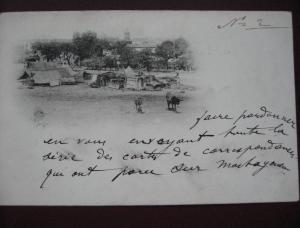 No 2
faire pardonner
en vous envoyant toute la
série des cartes de correspondance
qui ont paru sur